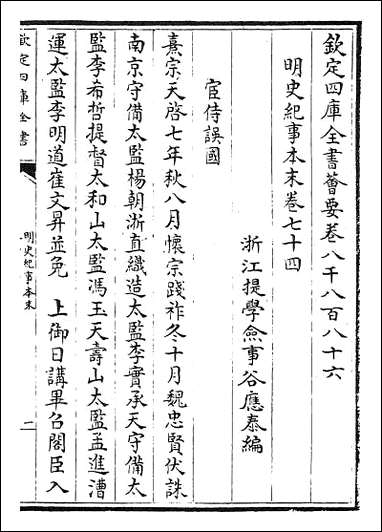 欽定四庫全書薈要卷八千八百八十六
明史紀事本末卷七十四
浙江提學僉事谷應泰編
宦侍誤國
熹宗天啓七年秋八月懷宗踐祚冬十月魏忠賢伏誅
南京守備太監楊朝浙直織造太監李實承天守備太
監李希哲提督太和山太監馮玉天壽山太監孟進漕
運太監李明道崔文昇並免 上御日講畢召閣臣入
欽定四庫全書
明史紀事本末
二